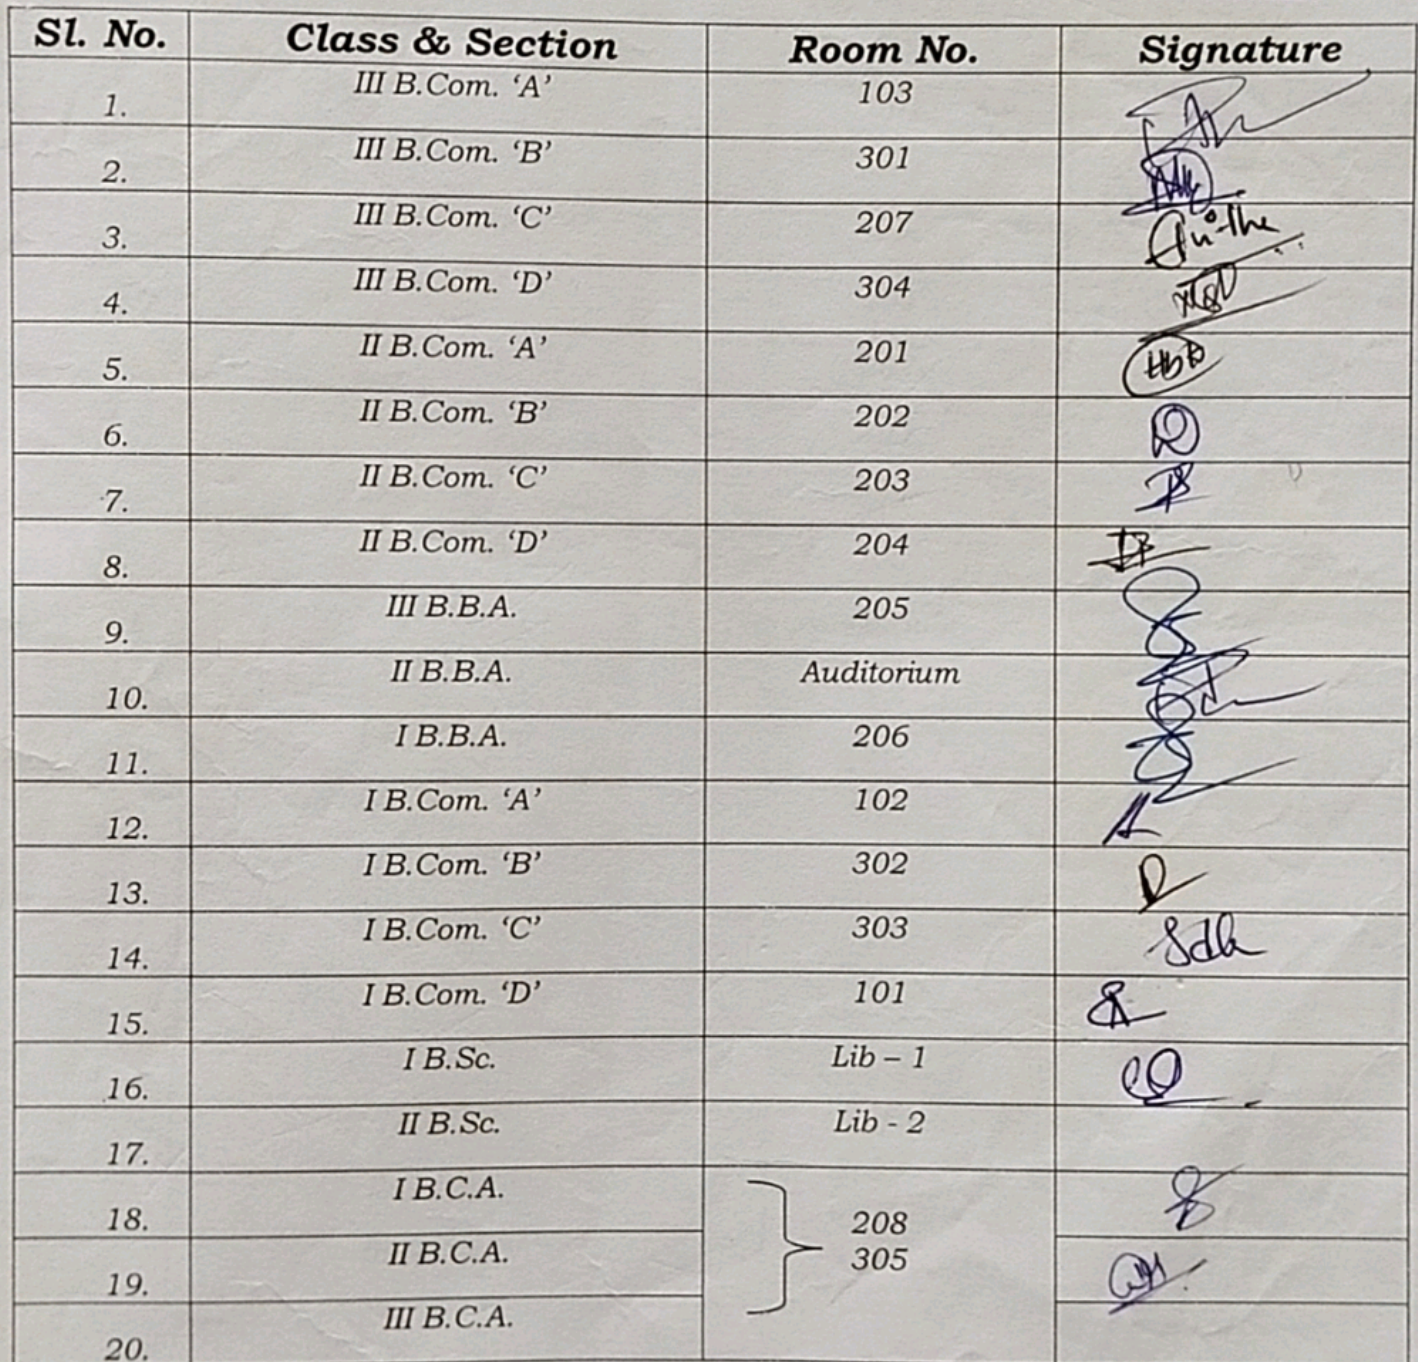 Sl. No. Class & Section Room No. Signature
1. III B.Com. ‘A’ 103
2. III B.Com. ‘B’ 301
3. III B.Com. ‘C’ 207
4. III B.Com. ‘D’ 304
5. II B.Com. ‘A’ 201
6. II B.Com. ‘B’ 202
7. II B.Com. ‘C’ 203
8. II B.Com. ‘D’ 204
9. III B.B.A. 205
10. II B.B.A. Auditorium
11. I B.B.A. 206
12. I B.Com. ‘A’ 102
13. I B.Com. ‘B’ 302
14. I B.Com. ‘C’ 303
15. I B.Com. ‘D’ 101
16. I B.Sc. Lib – 1
17. II B.Sc. Lib - 2
18. I B.C.A. 208
19. II B.C.A. 305
20. III B.C.A.